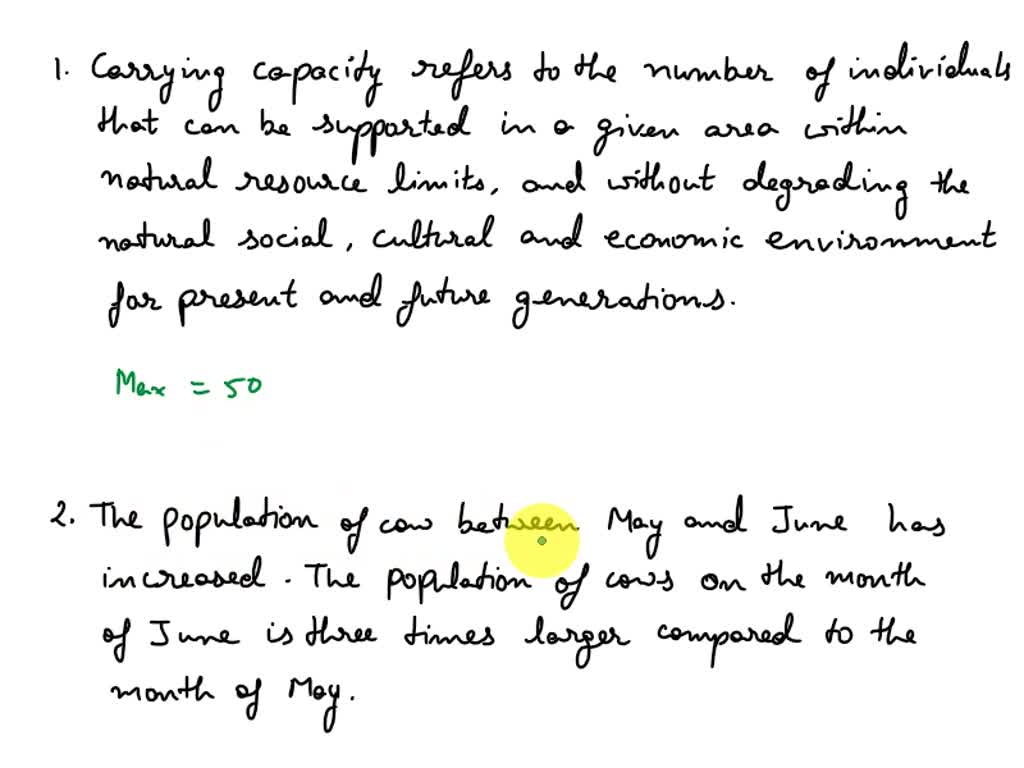 1. Carrying capacity refers to the number of individuals
that can be supported in a given area within
natural resource limits, and without degrading the
natural social, cultural and economic environment
for present and future generations.
Max = 50
2. The population of cow between May and June has
increased. The population of cows on the month
of June is three times larger compared to the
month of May.